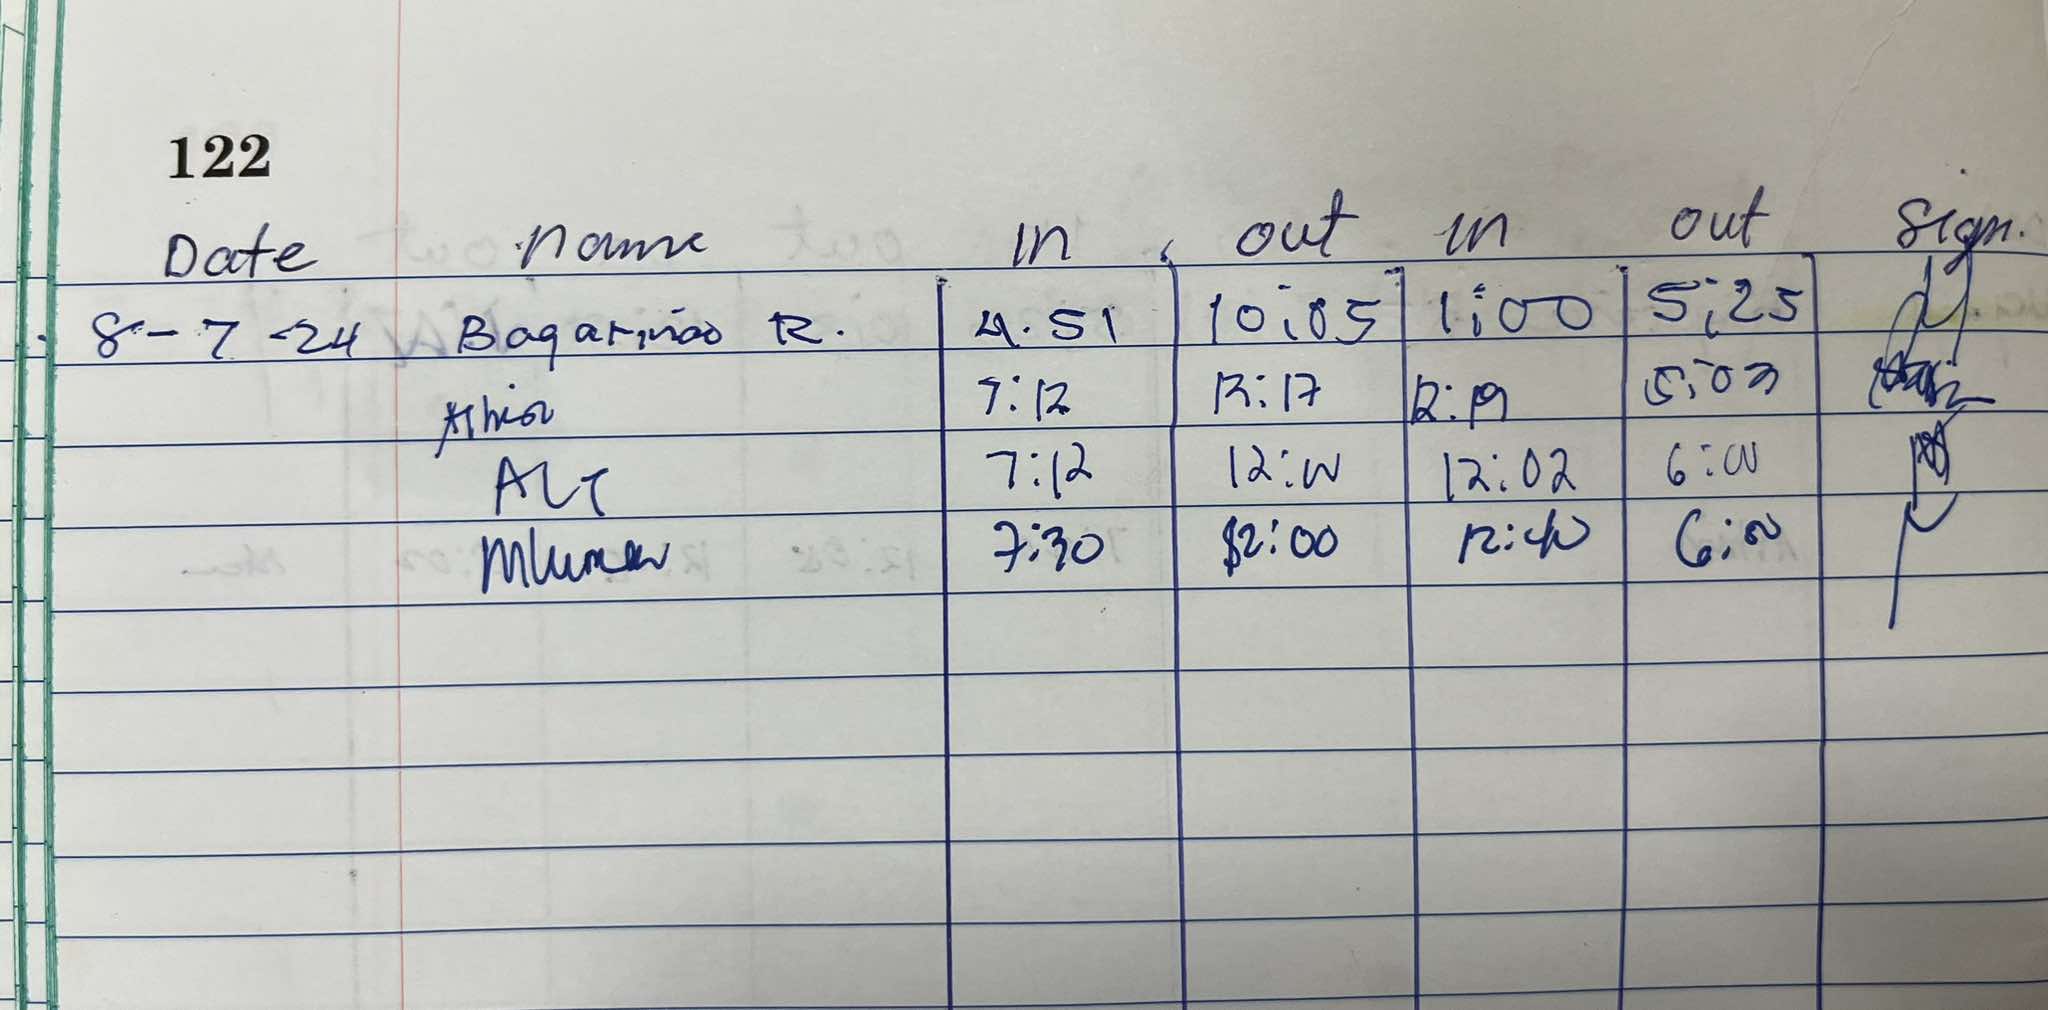 122
Date Name In out In out Sign.
8-7-24 Bagarinao R. 4.51 10:05 1:00 5:25
7:12 12:17 12:19 5:03
ALT 7:12 12:00 12:02 6:00
7:30 12:00 6:00